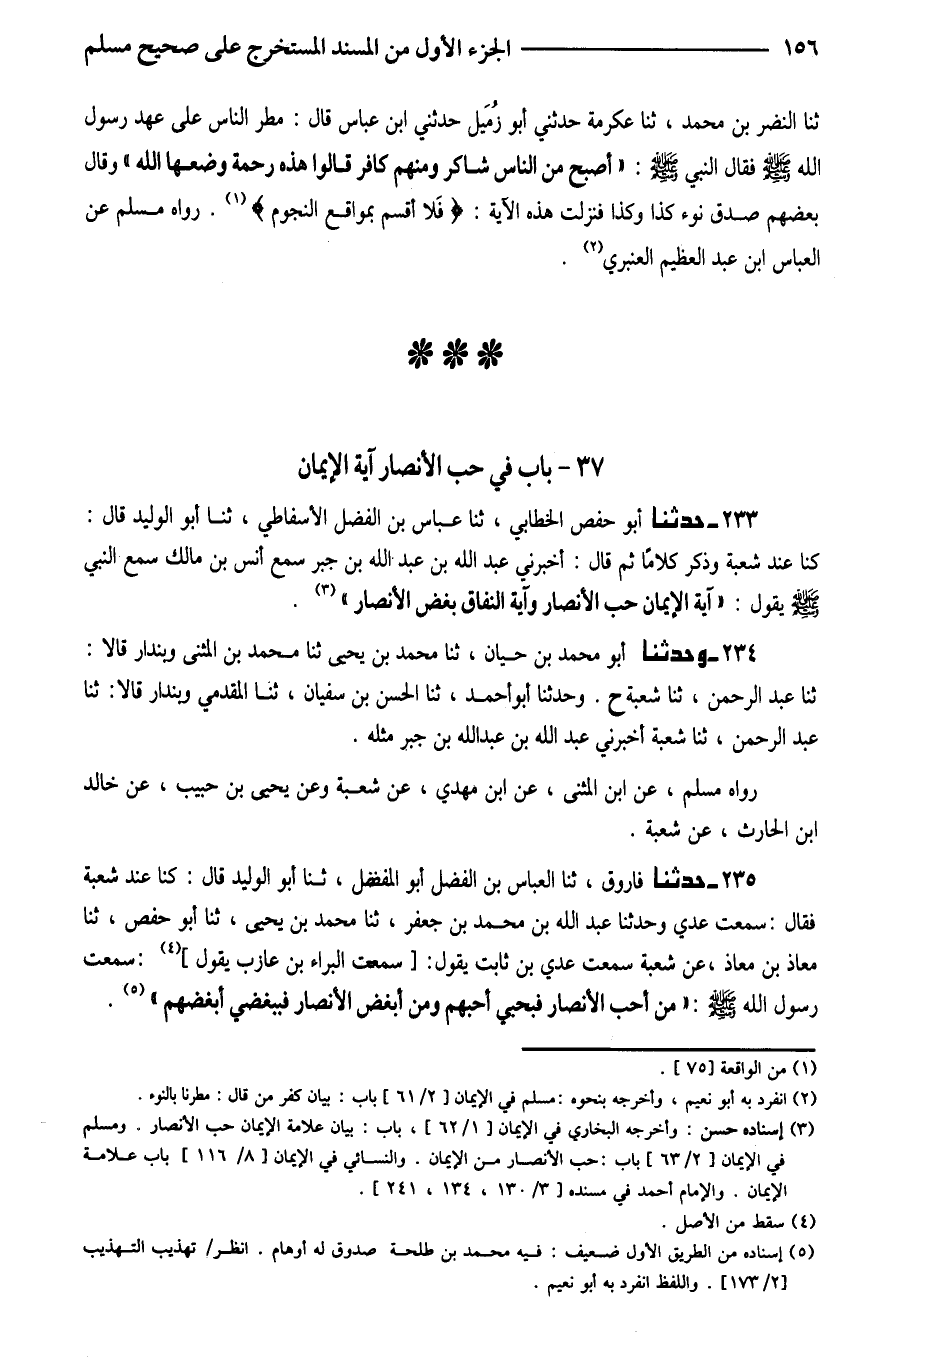 ١٥٦ ــــــــــ الجزء الأول من المسند المستخرج على صحيح مسلم
ثنا النضر بن محمد ، ثنا عكرمة حدثني أبو زُمَيل حدثني ابن عباس قال : مطر الناس على عهد رسول
الله ﷺ فقال النبي ﷺ : « أصبح من الناس شاكر ومنهم كافر قالوا هذه رحمة وضعها الله » وقال
بعضهم صدق نوء كذا وكذا فنزلت هذه الآية : ﴿ فَلا أقسم بمواقع النجوم ﴾ (١) . رواه مسلم عن
العباس ابن عبد العظيم العنبري(٢) .
❋ ❋ ❋
٣٧ - باب في حب الأنصار آية الإيمان
٢٣٣ـ حدثنا أبو حفص الخطابي ، ثنا عباس بن الفضل الأسفاطي ، ثنا أبو الوليد قال :
كنا عند شعبة وذكر كلامًا ثم قال : أخبرني عبد الله بن عبد الله بن جبر سمع أنس بن مالك سمع النبي
ﷺ يقول : « آية الإيمان حب الأنصار وآية النفاق بغض الأنصار » (٣) .
٢٣٤ـ وحدثنا أبو محمد بن حيان ، ثنا محمد بن يحيى ثنا محمد بن المثنى وبندار قالا :
ثنا عبد الرحمن ، ثنا شعبة ح . وحدثنا أبوأحمد ، ثنا الحسن بن سفيان ، ثنا المقدمي وبندار قالا: ثنا
عبد الرحمن ، ثنا شعبة أخبرني عبد الله بن عبدالله بن جبر مثله .
رواه مسلم ، عن ابن المثنى ، عن ابن مهدي ، عن شعبة وعن يحيى بن حبيب ، عن خالد
ابن الحارث ، عن شعبة .
٢٣٥ـ حدثنا فاروق ، ثنا العباس بن الفضل أبو المفضل ، ثنا أبو الوليد قال : كنا عند شعبة
فقال :سمعت عدي وحدثنا عبد الله بن محمد بن جعفر ، ثنا محمد بن يحيى ، ثنا أبو حفص ، ثنا
معاذ بن معاذ ،عن شعبة سمعت عدي بن ثابت يقول: [ سمعت البراء بن عازب يقول ](٤) :سمعت
رسول الله ﷺ :« من أحب الأنصار فبحبي أحبهم ومن أبغض الأنصار فببغضي أبغضهم » (٥) .
(١) من الواقعة [٧٥ ] .
(٢) انفرد به أبو نعيم ، وأخرجه بنحوه :مسلم في الإيمان [ ٢/ ٦١ ] باب : بيان كفر من قال : مطرنا بالنوء .
(٣) إسناده حسن : وأخرجه البخاري في الإيمان [ ١/ ٦٢ ] ، باب : بيان علامة الإيمان حب الأنصار . ومسلم
في الإيمان [ ٢/ ٦٣ ] باب :حب الأنصار من الإيمان . والنسائي في الإيمان [ ٨/ ١١٦ ] باب علامة
الإيمان . والإمام أحمد في مسنده [ ٣/ ١٣٠ ، ١٣٤ ، ٢٤١ ] .
(٤) سقط من الأصل .
(٥) إسناده من الطريق الأول ضعيف : فيه محمد بن طلحة صدوق له أوهام . انظر/ تهذيب التهذيب
[٢/ ١٧٣] . واللفظ انفرد به أبو نعيم .